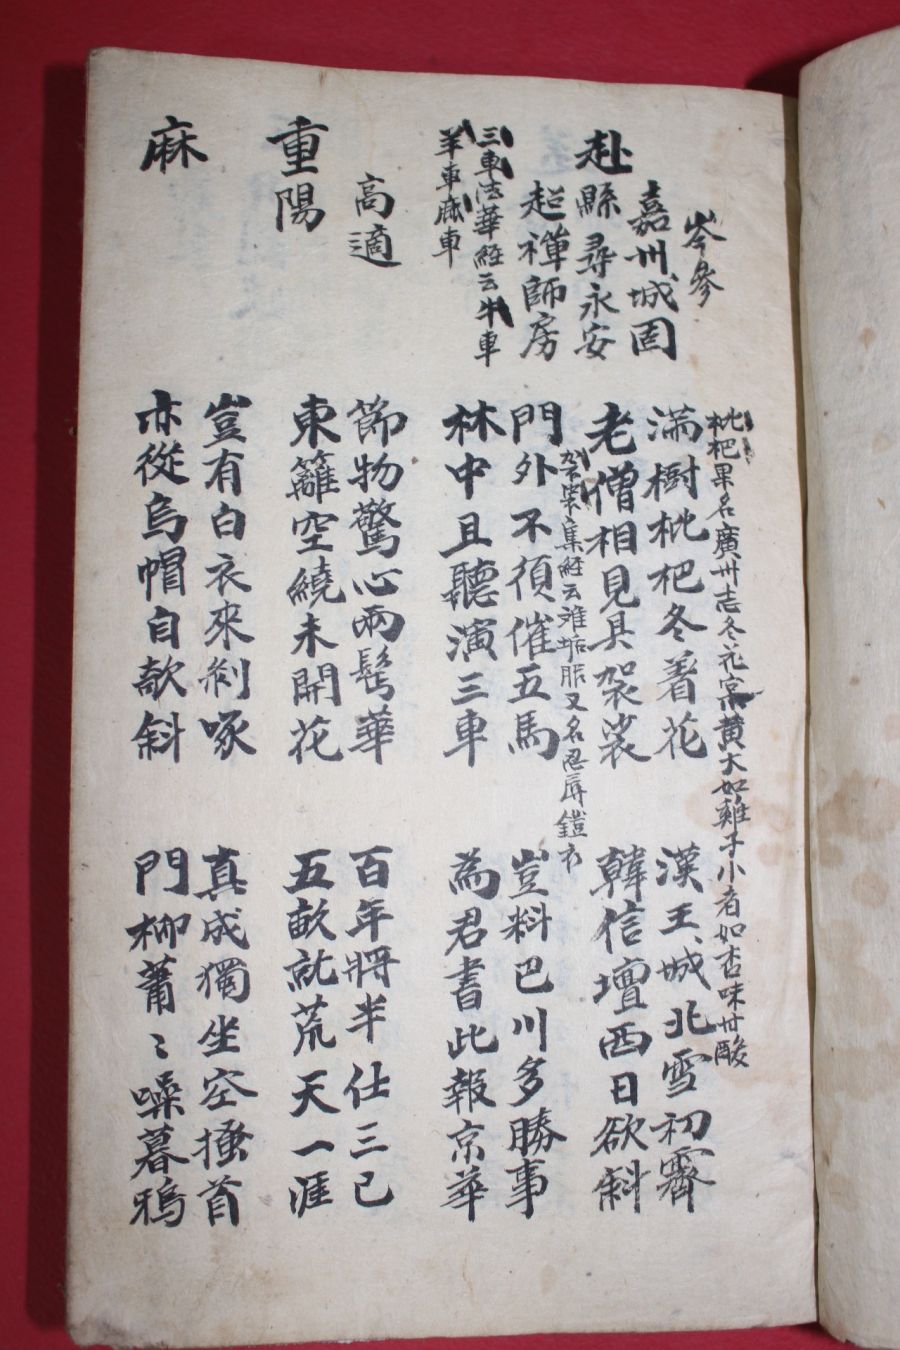 岑參
嘉州城固
赴縣尋永安
超禅師房
三車法華経云牛車
羊車鹿車
枇杷果名廣州志冬花実黄大如雞子小者如杏味甘酸
满樹枇杷冬着花
漢王城北雪初霽
老僧相見具袈裟
韓信壇西日欲斜
袈裟集経云难垢服又名忍辱鎧衣
門外不須催五馬
豈料巴川多勝事
林中且聽演三車
為君書此報京華
高適
重陽
節物驚心兩鬂華
百年將半仕三已
東籬空繞未開花
五畝就荒天一涯
麻
豈有白衣來剥啄
真成獨坐空搔首
亦從烏帽自欹斜
門柳蕭〻噪暮鴉